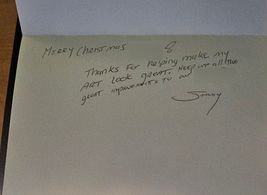 Merry Christmas
Thanks For helping make my
ART Look great. Keep up all the
great improvements to
Sonny